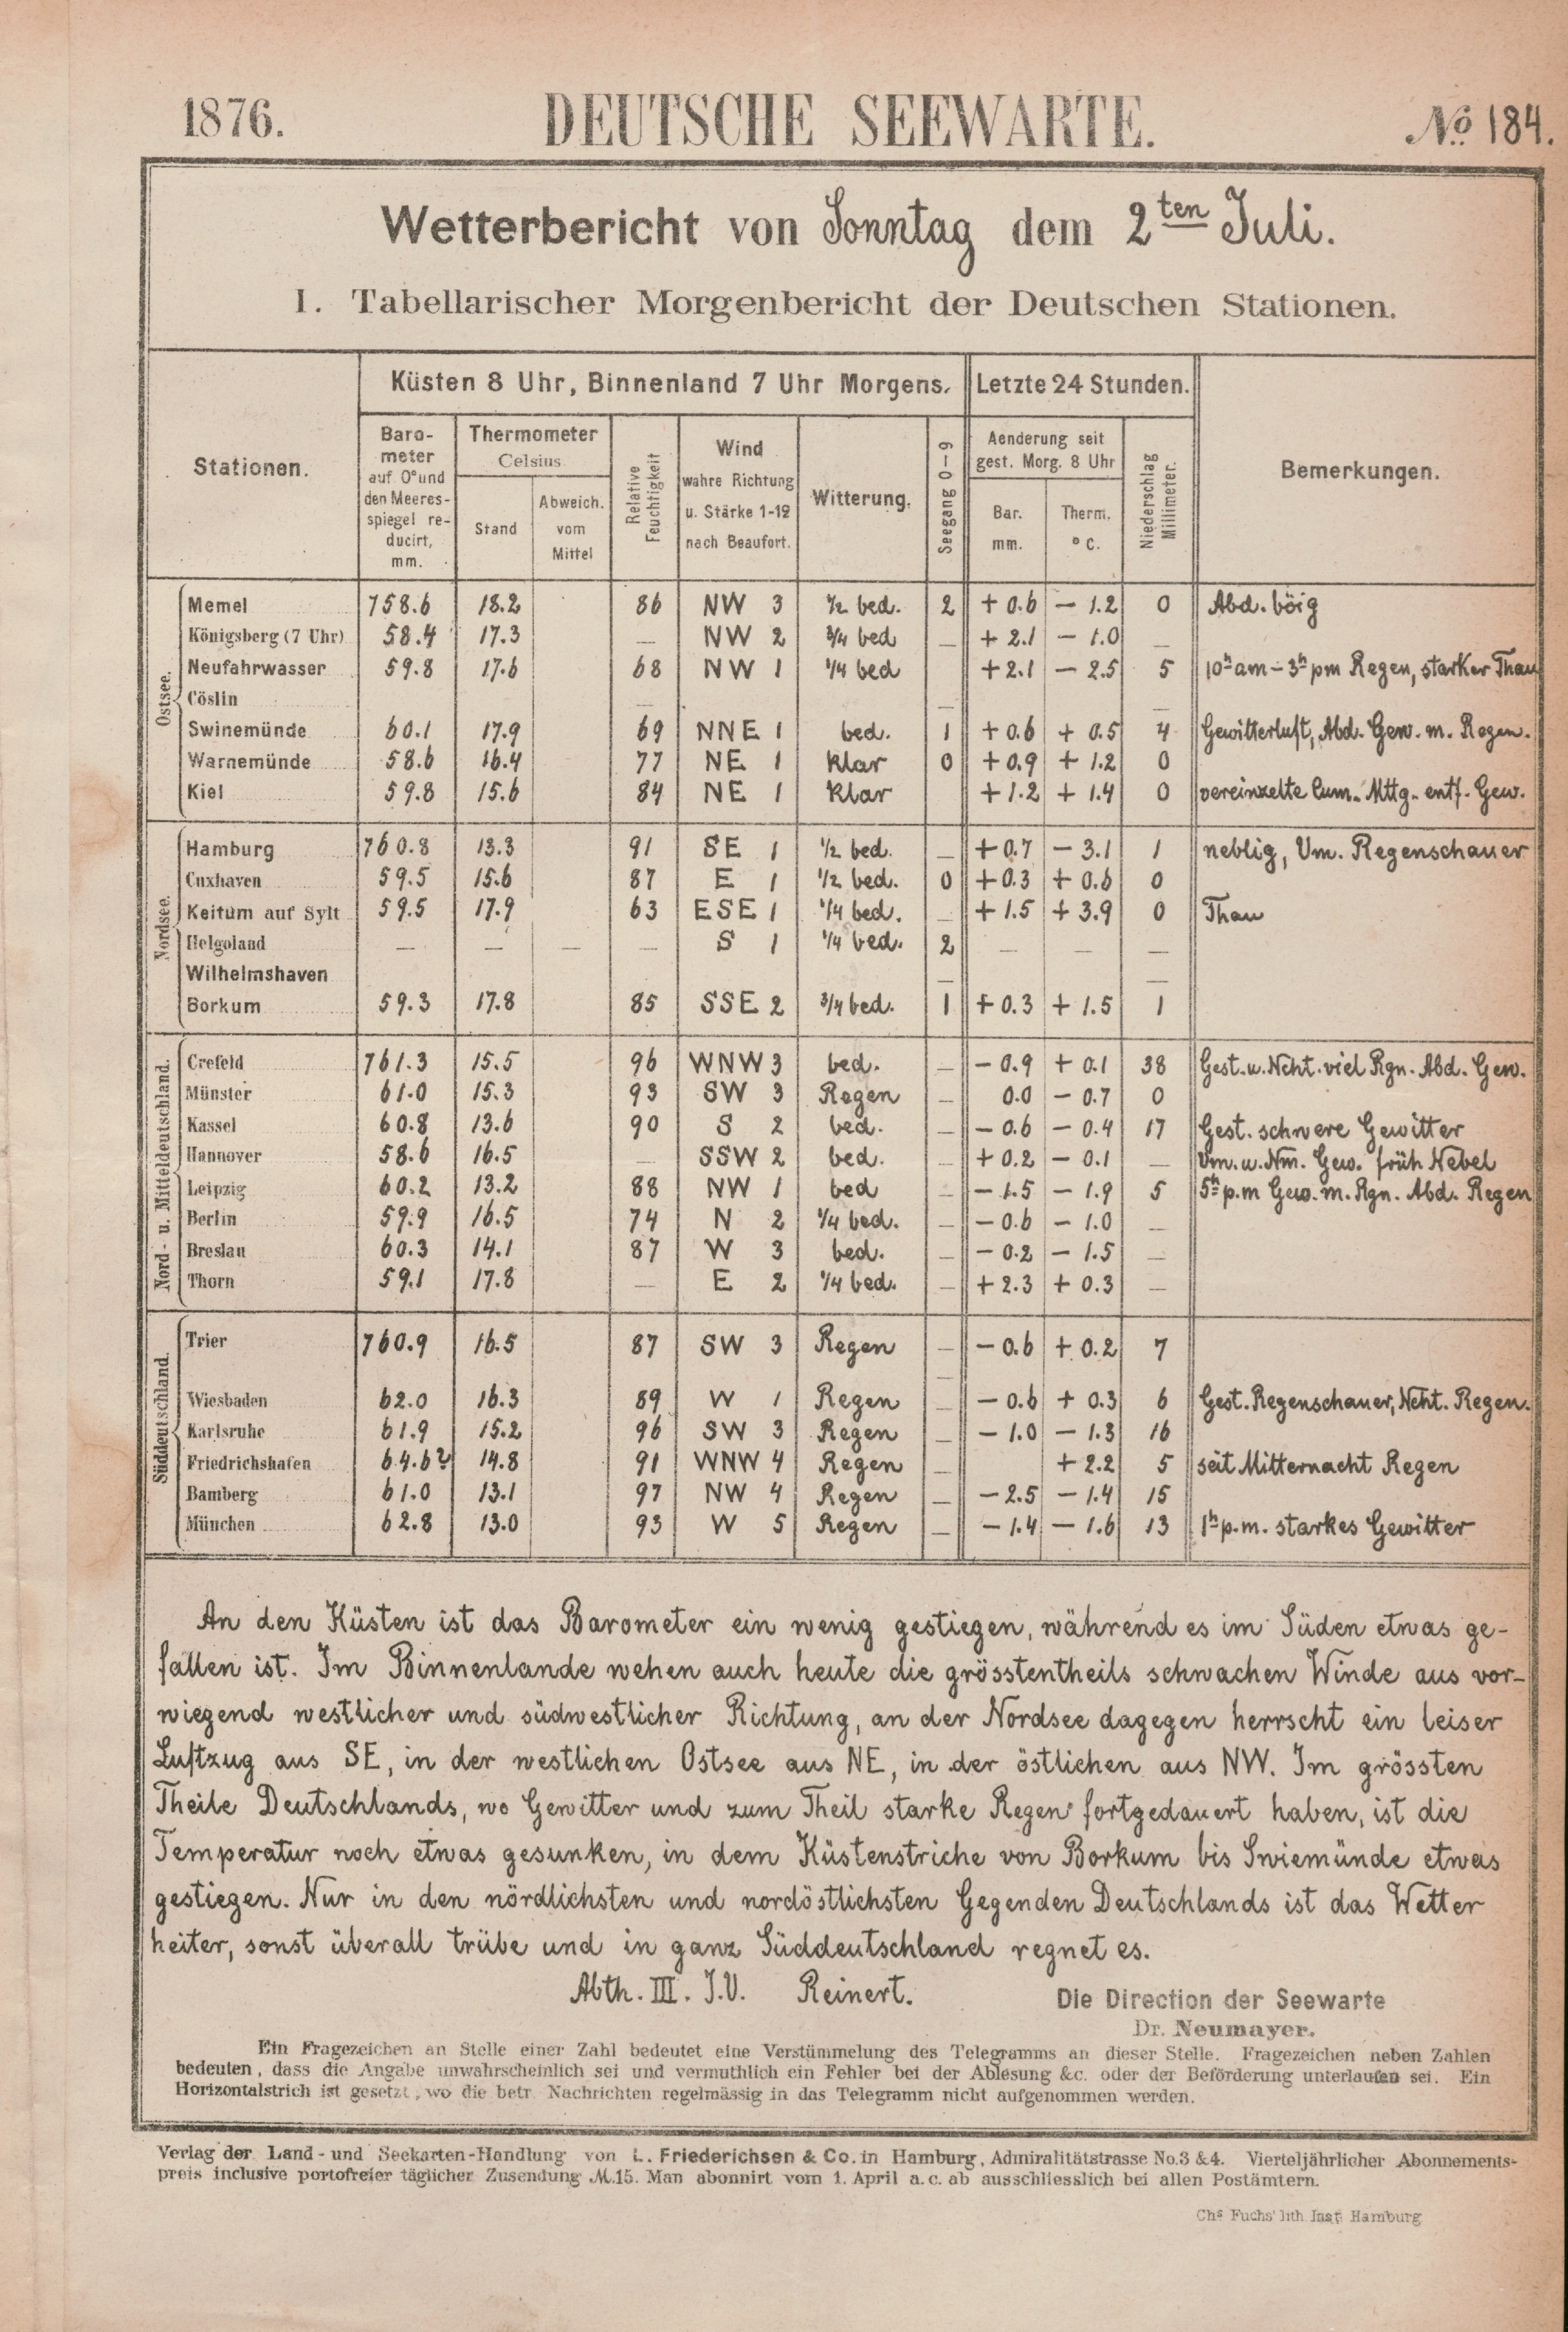 1876. DEUTSCHE SEEWARTE. No 184.
Wetterbericht von Sonntag dem 2ten Juli.
I. Tabellarischer Morgenbericht der Deutschen Stationen.
Stationen. Küsten 8 Uhr, Binnenland 7 Uhr Morgens. Letzte 24 Stunden. Bemerkungen.
Barometer auf 0° und den Meeresspiegel reducirt, mm. Thermometer Celsius Stand Abweich. vom Mittel Relative Feuchtigkeit Wind wahre Richtung u. Stärke 1-12 nach Beaufort. Witterung. Seegang 0-9 Aenderung seit gest. Morg. 8 Uhr Bar. mm. Therm. ° C. Niederschlag Millimeter.
Ostsee.
Memel 758.6 18.2 86 NW 3 1/2 bed. 2 + 0.6 − 1.2 0 Abd. böig
Königsberg (7 Uhr) 58.4 17.3 — NW 2 3/4 bed — + 2.1 − 1.0 —
Neufahrwasser 59.8 17.6 68 NW 1 1/4 bed +2.1 − 2.5 5 10h am − 3h pm Regen, starker Thau
Cöslin — — —
Swinemünde 60.1 17.9 69 NNE 1 bed. 1 + 0.6 + 0.5 4 Gewitterluft, Abd. Gew. m. Regen.
Warnemünde 58.6 16.4 77 NE 1 klar 0 +0.9 + 1.2 0
Kiel 59.8 15.6 84 NE 1 klar + 1.2 + 1.4 0 vereinzelte Cum. Mttg. entf. Gew.
Nordsee.
Hamburg 760.8 13.3 91 SE 1 1/2 bed. — +0.7 − 3.1 1 neblig, Vm. Regenschauer
Cuxhaven 59.5 15.6 87 E 1 1/2 bed. 0 +0.3 + 0.6 0
Keitum auf Sylt 59.5 17.9 63 ESE 1 1/4 bed. — + 1.5 + 3.9 0 Thau
Helgoland — — — — S 1 1/4 bed. 2 — — —
Wilhelmshaven — —
Borkum 59.3 17.8 85 SSE 2 3/4 bed. 1 +0.3 + 1.5 1
Nord- u. Mitteldeutschland.
Crefeld 761.3 15.5 96 WNW 3 bed. — − 0.9 + 0.1 38 Gest. u. Ncht. viel Rgn. Abd. Gew.
Münster 61.0 15.3 93 SW 3 Regen — 0.0 − 0.7 0
Kassel 60.8 13.6 90 S 2 bed. — − 0.6 − 0.4 17 Gest. schwere Gewitter
Hannover 58.6 16.5 — SSW 2 bed. — + 0.2 − 0.1 — Vm. u. Nm. Gew. früh Nebel
Leipzig 60.2 13.2 88 NW 1 bed — − 1.5 − 1.9 5 5h p.m Gew. m. Rgn. Abd. Regen
Berlin 59.9 16.5 74 N 2 1/4 bed. — − 0.6 − 1.0 —
Breslau 60.3 14.1 87 W 3 bed. — − 0.2 − 1.5 —
Thorn 59.1 17.8 — E 2 1/4 bed. — + 2.3 + 0.3 —
Süddeutschland.
Trier 760.9 16.5 87 SW 3 Regen — − 0.6 + 0.2 7
Wiesbaden 62.0 16.3 89 W 1 Regen — − 0.6 + 0.3 6 Gest. Regenschauer, Ncht. Regen.
Karlsruhe 61.9 15.2 96 SW 3 Regen — − 1.0 − 1.3 16
Friedrichshafen 64.6? 14.8 91 WNW 4 Regen — + 2.2 5 seit Mitternacht Regen
Bamberg 61.0 13.1 97 NW 4 Regen — − 2.5 − 1.4 15
München 62.8 13.0 93 W 5 Regen — − 1.4 − 1.6 13 1h p.m. starkes Gewitter
An den Küsten ist das Barometer ein wenig gestiegen, während es im Süden etwas ge-
fallen ist. Im Binnenlande wehen auch heute die grösstentheils schwachen Winde aus vor-
wiegend westlicher und südwestlicher Richtung, an der Nordsee dagegen herrscht ein leiser
Luftzug aus SE, in der westlichen Ostsee aus NE, in der östlichen aus NW. Im grössten
Theile Deutschlands, wo Gewitter und zum Theil starke Regen fortgedauert haben, ist die
Temperatur noch etwas gesunken, in dem Küstenstriche von Borkum bis Swiemünde etwas
gestiegen. Nur in den nördlichsten und nordöstlichsten Gegenden Deutschlands ist das Wetter
heiter, sonst überall trübe und in ganz Süddeutschland regnet es.
Abth. III. I.V. Reinert.
Die Direction der Seewarte
Dr. Neumayer.
Ein Fragezeichen an Stelle einer Zahl bedeutet eine Verstümmelung des Telegramms an dieser Stelle. Fragezeichen neben Zahlen
bedeuten, dass die Angabe unwahrscheinlich sei und vermuthlich ein Fehler bei der Ablesung &c. oder der Beförderung unterlaufen sei. Ein
Horizontalstrich ist gesetzt, wo die betr. Nachrichten regelmässig in das Telegramm nicht aufgenommen werden.
Verlag der Land- und Seekarten-Handlung von L. Friederichsen & Co. in Hamburg, Admiralitätstrasse No. 3 & 4. Vierteljährlicher Abonnements-
preis inclusive portofreier täglicher Zusendung M. 15. Man abonnirt vom 1. April a. c. ab ausschliesslich bei allen Postämtern.
Chs Fuchs' lith. Inst. Hamburg